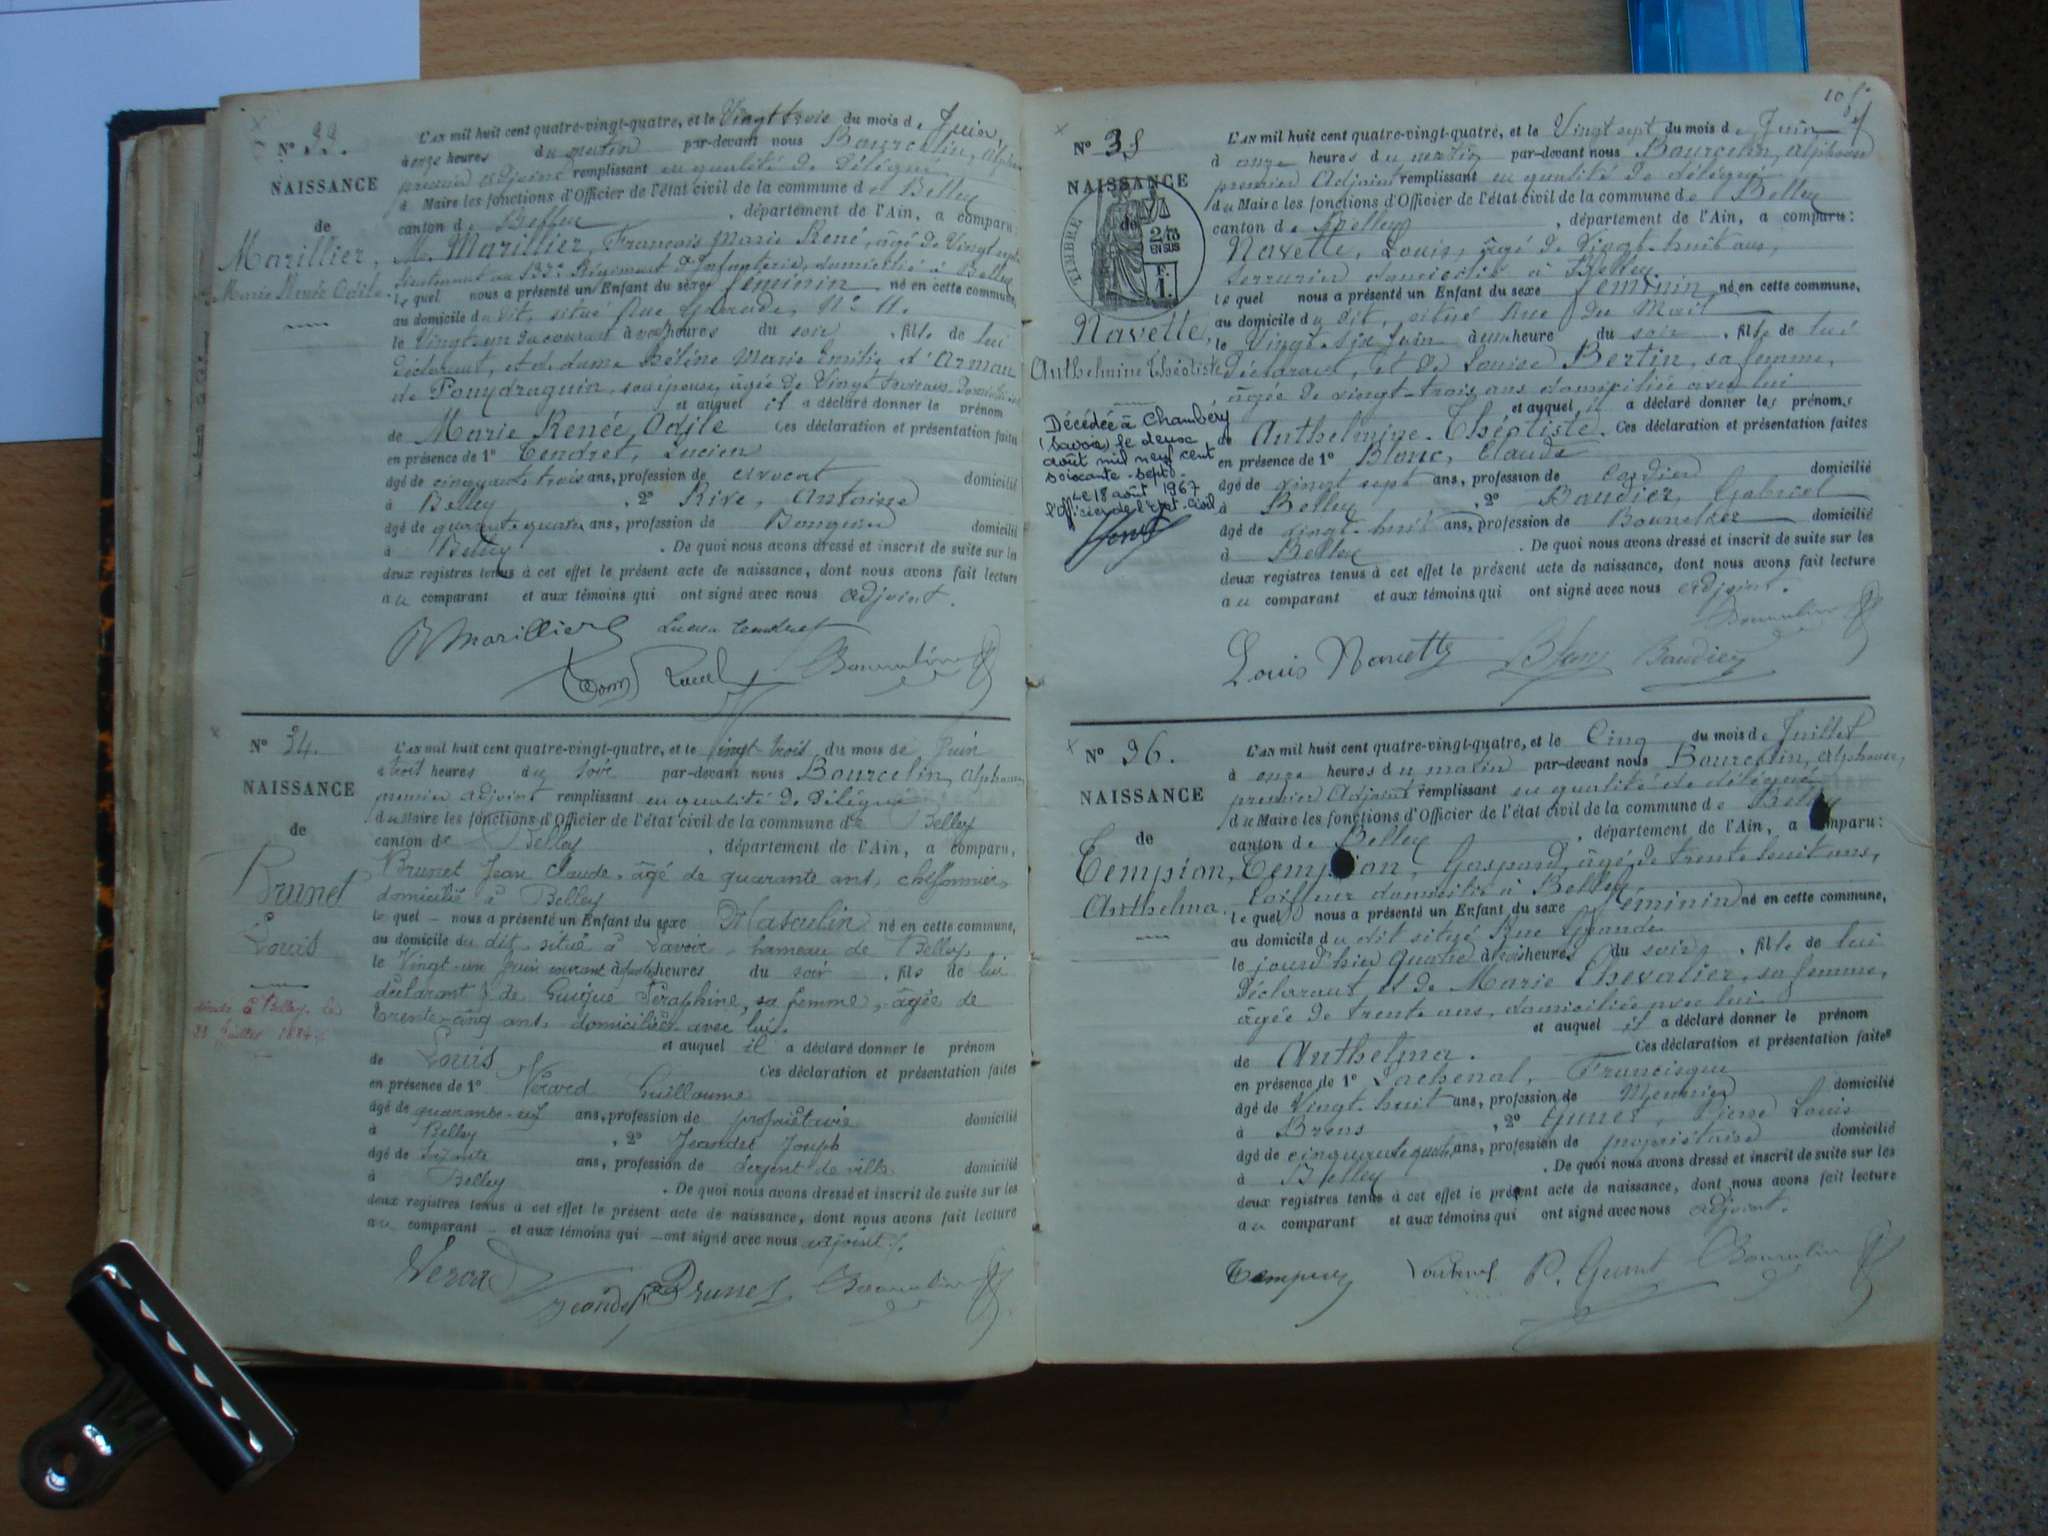 Nº 33.
NAISSANCE
de
Marillier,
Marie Renée Odile.
L'AN mil huit cent quatre-vingt-quatre, et le Vingt trois du mois de Juin,
à onze heures du matin par-devant nous Bourcelin, Alphonse
premier adjoint remplissant en qualité de délégué
à Maire les fonctions d'Officier de l'état civil de la commune de Belley
canton de Belley, département de l'Ain, a comparu:
Mr Marillier, François Marie René, âgé de Vingt sept
lieutenant au 133e Régiment d'Infanterie, domicilié à Belley
lequel nous a présenté un Enfant du sexe féminin né en cette commune,
au domicile du dit, situé Rue Grande, Nº 11.
le Vingt-un du courant à heures du soir, fille de lui
déclarant, et de dame Hélène Marie Emilie d'Arman
de Pouydraguin, son épouse, âgée de Vingt trois ans
et auquel il a déclaré donner le prénom
de Marie Renée Odile Ces déclaration et présentation faites
en présence de 1º Tendret, Lucien
âgé de cinquante trois ans, profession de avocat domicilié
à Belley, 2º Rive, Antoine
âgé de quarante quatre ans, profession de Banquier domicilié
à Belley. De quoi nous avons dressé et inscrit de suite sur les
deux registres tenus à cet effet le présent acte de naissance, dont nous avons fait lecture
au comparant et aux témoins qui ont signé avec nous adjoint.
R Marillier Lucien Tendret
Bourcelin
Nº 34.
NAISSANCE
de
Brunet
Louis
décédé à Belley, le
23 Juillet 1884
L'AN mil huit cent quatre-vingt-quatre, et le vingt-trois du mois de Juin
à trois heures du soir par-devant nous Bourcelin, Alphonse,
premier adjoint remplissant en qualité de délégué
du Maire les fonctions d'Officier de l'état civil de la commune de Belley
canton de Belley, département de l'Ain, a comparu,
Brunet Jean Claude, âgé de quarante ans, chiffonnier,
domicilié à Belley
lequel nous a présenté un Enfant du sexe Masculin né en cette commune,
au domicile du dit, situé à Lavoir, hameau de Belley,
le Vingt-un Juin courant à heures du soir, fils de lui
déclarant & de Guigue Séraphine, sa femme, âgée de
trente-cinq ans, domiciliée avec lui.
et auquel il a déclaré donner le prénom
de Louis Ces déclaration et présentation faites
en présence de 1º Vérard Guillaume
âgé de quarante-neuf ans, profession de propriétaire domicilié
à Belley, 2º Jeandet Joseph
âgé de soixante ans, profession de sergent de ville domicilié
à Belley. De quoi nous avons dressé et inscrit de suite sur les
deux registres tenus à cet effet le présent acte de naissance, dont nous avons fait lecture
au comparant et aux témoins qui ont signé avec nous adjoint.
Verard Jeandet Brunet Bourcelin
105
Nº 35
NAISSANCE
de
TIMBRE
2/10
EN SUS
F.
1.
Navette,
Anthelmine Théotiste
Décédée à Chambéry
(Savoie) le deux
août mil neuf cent
soixante-sept
Le 18 août 1967
l'Officier de l'état-civil
L'AN mil huit cent quatre-vingt-quatre, et le Vingt sept du mois de Juin
à onze heures du matin par-devant nous Bourcelin, Alphonse
premier Adjoint remplissant en qualité de délégué
du Maire les fonctions d'Officier de l'état civil de la commune de Belley
canton de Belley, département de l'Ain, a comparu:
Navette, Louis, âgé de Vingt-huit ans,
serrurier domicilié à Belley.
lequel nous a présenté un Enfant du sexe féminin né en cette commune,
au domicile du dit, situé Rue du Mail
le Vingt-six Juin à une heure du soir, fille de lui
déclarant, et de Louise Bertin, sa femme,
âgée de vingt-trois ans domiciliée avec lui
et auquel il a déclaré donner les prénoms
de Anthelmine-Théotiste. Ces déclaration et présentation faites
en présence de 1º Blanc, Claude
âgé de vingt sept ans, profession de cordier domicilié
à Belley, 2º Baudier, Gabriel
âgé de vingt-huit ans, profession de Bourrelier domicilié
à Belley. De quoi nous avons dressé et inscrit de suite sur les
deux registres tenus à cet effet le présent acte de naissance, dont nous avons fait lecture
au comparant et aux témoins qui ont signé avec nous adjoint.
Bourcelin
Louis Navette Blanc Baudier
Nº 36.
NAISSANCE
de
Tempion,
Anthelma.
L'AN mil huit cent quatre-vingt-quatre, et le Cinq du mois de Juillet
à onze heures du matin par-devant nous Bourcelin, Alphonse,
premier Adjoint remplissant en qualité de délégué
du Maire les fonctions d'Officier de l'état civil de la commune de Belley
canton de Belley, département de l'Ain, a comparu:
Tempion, Gaspard, âgé de trente huit ans,
tailleur domicilié à Belley
lequel nous a présenté un Enfant du sexe féminin né en cette commune,
au domicile du dit situé Rue Grande
le quatre à trois heures du soir, fille de lui
déclarant et de Marie Chevalier, sa femme,
âgée de trente ans, domiciliée avec lui
et auquel il a déclaré donner le prénom
de Anthelma. Ces déclaration et présentation faites
en présence de 1º Lachenal, Francisque
âgé de Vingt-huit ans, profession de Meunier domicilié
à Brens, 2º Louis
âgé de cinquante quatre ans, profession de propriétaire domicilié
à Belley. De quoi nous avons dressé et inscrit de suite sur les
deux registres tenus à cet effet le présent acte de naissance, dont nous avons fait lecture
au comparant et aux témoins qui ont signé avec nous adjoint.
Bourcelin